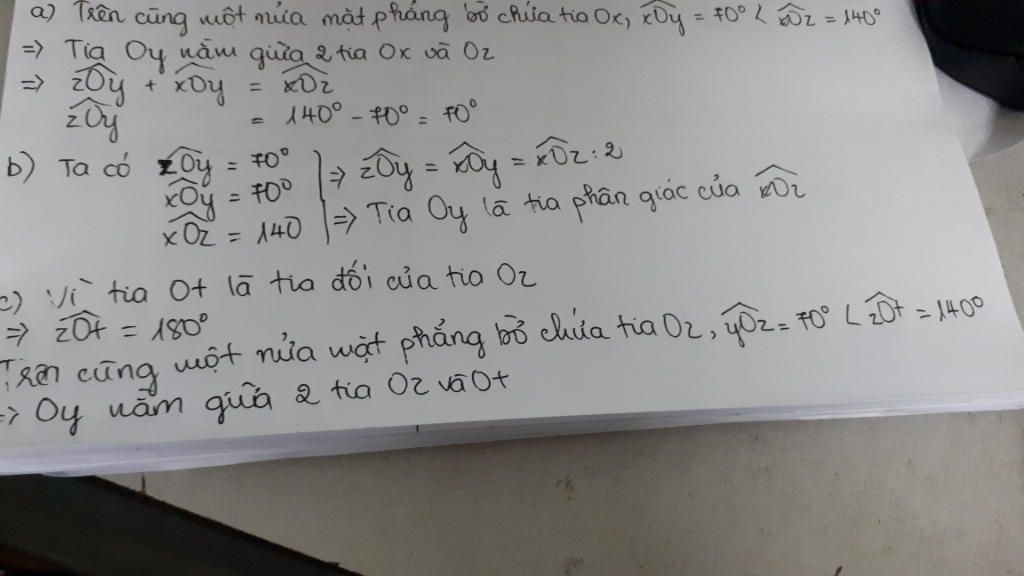 a) Trên cùng một nửa mặt phẳng bờ chứa tia Ox, xOy = 70° < xOz = 140°
=> Tia Oy nằm giữa 2 tia Ox và Oz
=> zOy + xOy = xOz
zOy = 140° - 70° = 70°
b) Ta có zOy = 70°
xOy = 70°
xOz = 140
=> zOy = xOy = xOz : 2
=> Tia Oy là tia phân giác của xOz
c) Vì tia Ot là tia đối của tia Oz
=> zOt = 180°
Trên cùng một nửa mặt phẳng bờ chứa tia Oz, yOz = 70° < zOt = 140°
=> Oy nằm giữa 2 tia Oz và Ot